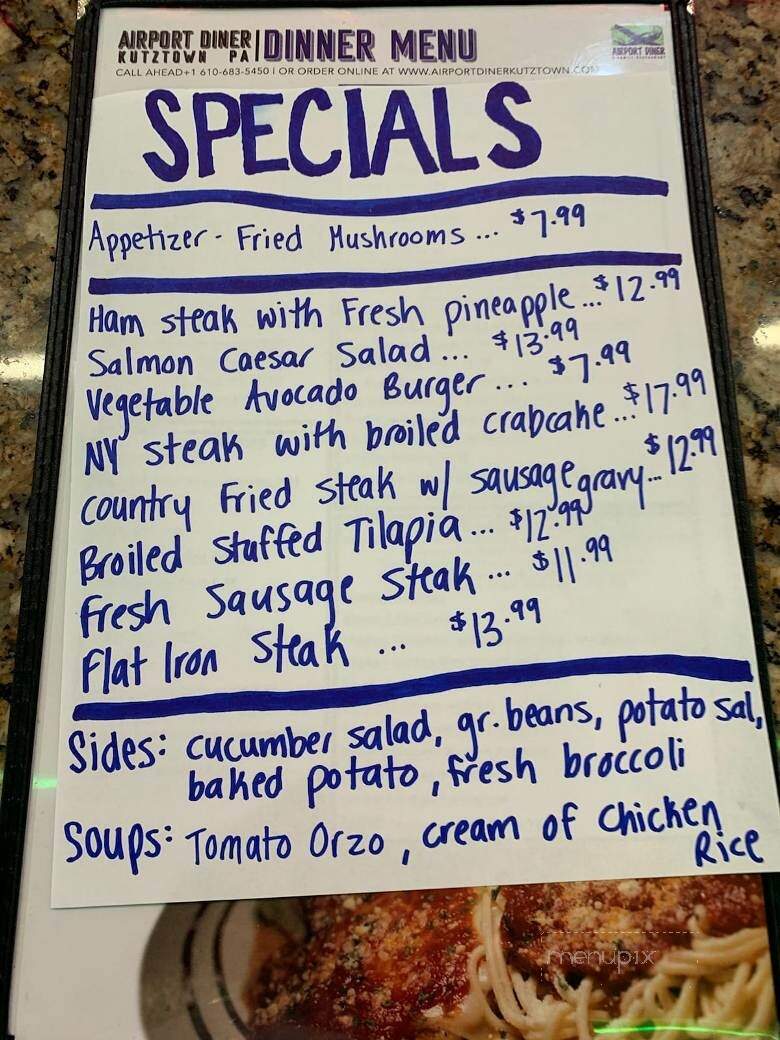 AIRPORT DINER | DINNER MENU
KUTZTOWN PA
AIRPORT DINER
CALL AHEAD+1 610-683-5450 | OR ORDER ONLINE AT WWW.AIRPORTDINERKUTZTOWN.COM
SPECIALS
Appetizer - Fried Mushrooms... $7.99
Ham steak with Fresh pineapple...$12.99
Salmon Caesar Salad... $13.99
Vegetable Avocado Burger... $7.99
NY steak with broiled crabcake...$17.99
Country Fried steak w/ sausage gravy...$12.99
Broiled Stuffed Tilapia... $12.99
Fresh Sausage Steak... $11.99
Flat Iron Steak ... $13.99
Sides: cucumber salad, gr. beans, potato sal,
baked potato, fresh broccoli
Soups: Tomato Orzo, cream of Chicken
Rice
menupix